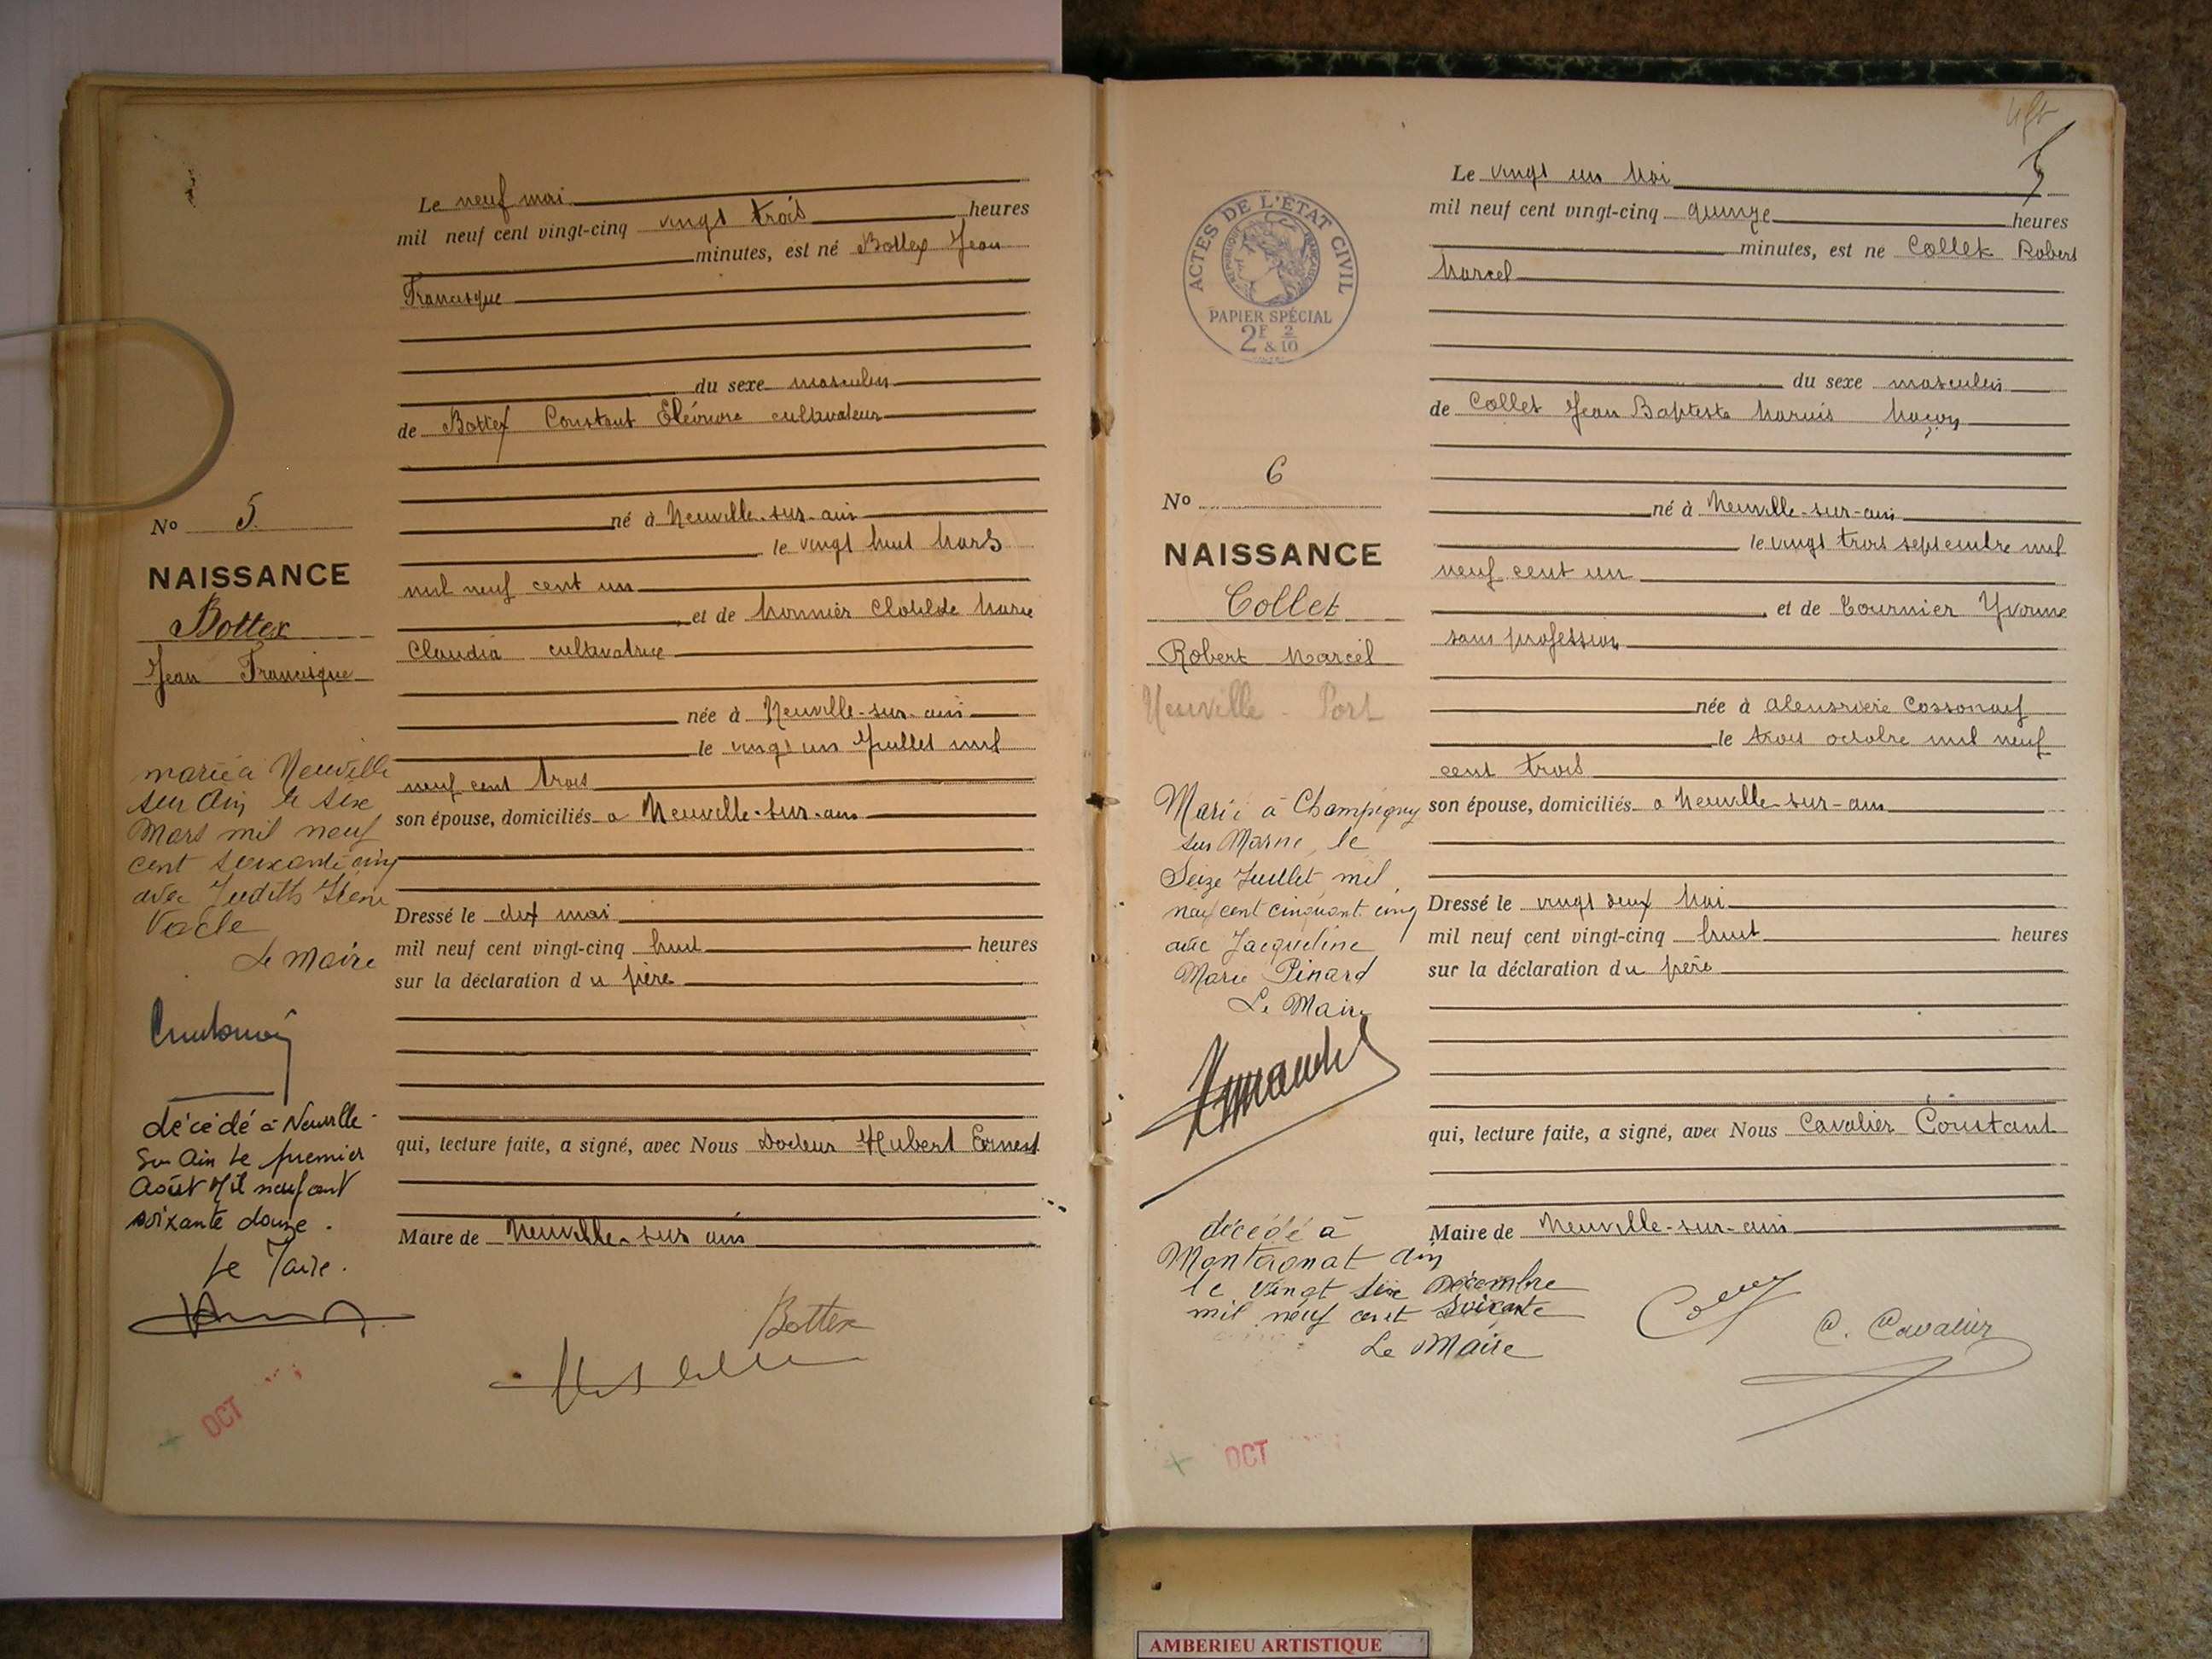 Le neuf mai
mil neuf cent vingt-cinq vingt trois heures
minutes, est né Bottex Jean
Francisque
du sexe masculin
de Bottex Constant Éléonore cultivateur
né à Neuville-sur-ain
le vingt huit Mars
mil neuf cent un
et de Monnier Clotilde Marie
Claudia cultivatrice
née à Neuville-sur-ain
le vingt un Juillet mil
neuf cent trois
son épouse, domiciliés a Neuville-sur-ain
Dressé le dix mai
mil neuf cent vingt-cinq huit heures
sur la déclaration du père
qui, lecture faite, a signé, avec Nous Docteur Hubert Ernest
Maire de Neuville-sur ain
Bottex
No 5.
NAISSANCE
Bottex
Jean Francisque
marié à Neuville
sur Ain le six
Mars mil neuf
cent soixante cinq
avec Judith Irène
Vacle
Le Maire
décédé à Neuville-
sur Ain le premier
Août Mil neuf cent
soixante douze.
Le Maire.
OCT
5
Le vingt un Mai
mil neuf cent vingt-cinq quinze heures
minutes, est né Collet Robert
Marcel
du sexe masculin
de Collet Jean Baptiste Marius Maçon
né à Neuville-sur-ain
le vingt trois septembre mil
neuf cent un
et de Tournier Yvonne
sans profession
née à
le trois octobre mil neuf
cent trois
son épouse, domiciliés a Neuville-sur-ain
Dressé le vingt deux Mai
mil neuf cent vingt-cinq huit heures
sur la déclaration du père
qui, lecture faite, a signé, avec Nous Cavalier Constant
Maire de Neuville-sur-ain
C. Cavalier
ACTES DE L'ÉTAT CIVIL
RÉPUBLIQUE FRANÇAISE
PAPIER SPÉCIAL
2F & 2/10
No 6
NAISSANCE
Collet
Robert Marcel
Neuville - Port
Marié à Champigny
sur Marne, le
Seize Juillet mil
neuf cent cinquante cinq
avec Jacqueline
Marie Pinard
Le Maire
décédé à
Montagnat Ain
le vingt six Décembre
mil neuf cent soixante
Le Maire
OCT
AMBERIEU ARTISTIQUE